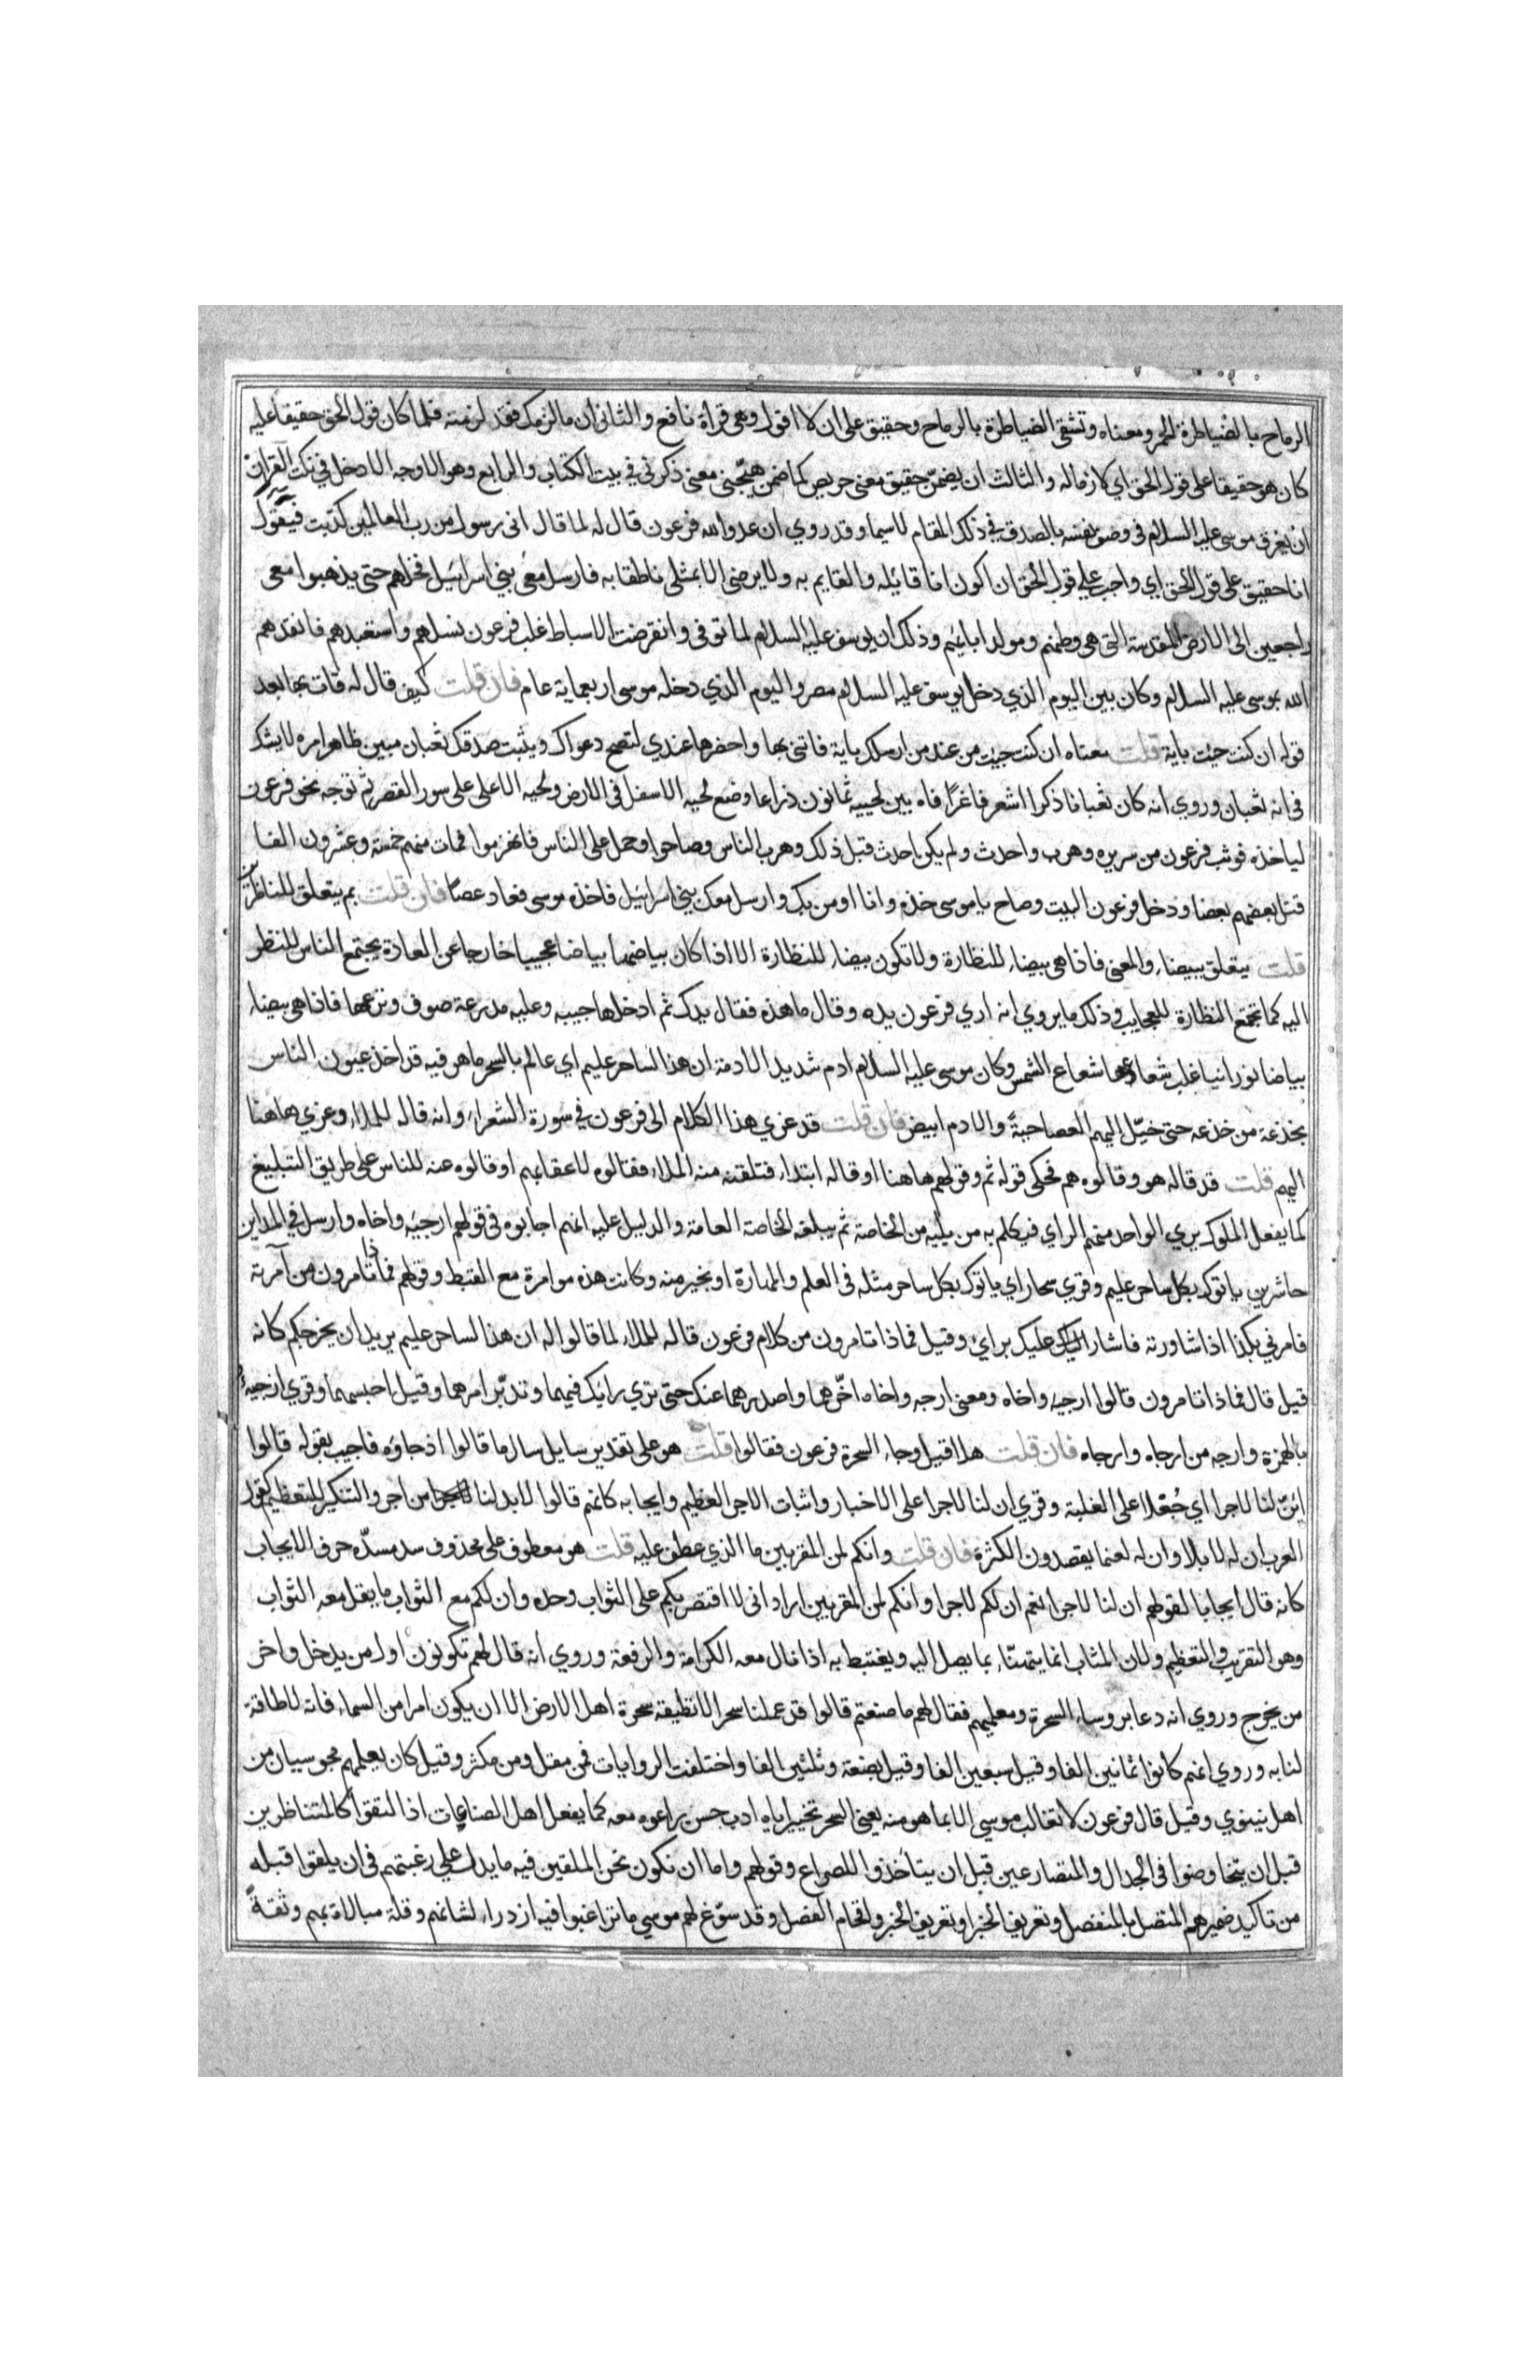 الرماح بالضياطرة الحمر ومعناه وتشقى الضياطرة بالرماح وحقيق على ان لا اقول وهى قراة نافع والثانى ان ما لزمك فقد لزمته فلما كان قول الحق حقيقا عليه
كان هو حقيقا على قول الحق اي لازما له والثالث ان يضمن حقيق معنى حريص كما ضمن هيّجنى معنى ذكرنى في بيت الكتاب والرابع وهو الاوجه الادخل في نكت القران
ان يغرق موسى عليه السلام فى وصف نفسه بالصدق في ذلك المقام لاسيما وقد روي ان عدو الله فرعون قال له لما قال انى رسول من رب العالمين كذبت فيقول
انا حقيق على قول الحق اي واجب على قول الحق ان اكون انا قائله والقايم به ولا يرضى الا بمثلى ناطقا به فارسل معى بنى اسرائيل فخلهم حتى يذهبوا معى
راجعين الى الارض المقدسة التى هى وطنهم ومولد ابايهم وذلك ان يوسف عليه السلام لما توفى وانقرضت الاسباط غلب فرعون نسلهم واستعبدهم فانقذهم
الله بموسى عليه السلام وكان بين اليوم الذي دخل يوسف عليه السلام مصر واليوم الذي دخله موسى اربعماية عام فان قلت كيف قال له فات بها بعد
قوله ان كنت جيت باية قلت معناه ان كنت جيت من عند من ارسلك باية فاتنى بها واحضرها عندي لتصح دعواك ويثبت صدقك ثعبان مبين ظاهر امره لا يشك
فى انه ثعبان وروي انه كان ثعبانا ذكرا اشعر فاغرًا فاه بين لحييه ثمانون ذراعا وضع لحيه الاسفل فى الارض ولحيه الاعلى على سور القصر ثم توجه نحو فرعون
لياخذه فوثب فرعون من سريره وهرب واحدث ولم يكن احدث قبل ذلك وهرب الناس وصاحوا وحمل على الناس فانهزموا فمات منهم خمسة وعشرون الفا
قتل بعضهم بعضا ودخل فرعون البيت وصاح يا موسى خذه وانا اومن بك وارسل معك بني اسرائيل فاخذه موسى فعاد عصًا فان قلت بم يتعلق للناظرين
قلت يتعلق ببيضاء والمعنى فاذا هى بيضاء للنظارة ولا تكون بيضاء للنظارة الا اذا كان بياضها بياضا عجيبا خارجا عن العادة يجتمع الناس للنظر
اليه كما تجتمع النظارة للعجايب وذلك ما يروي انه اري فرعون يده وقال ما هذه فقال يدك ثم ادخلها جيبه وعليه مدرعة صوف ونزعها فاذا هى بيضاء
بياضا نورانيا غلب شعاعها شعاع الشمس وكان موسى عليه السلام ادم شديد الادمة ان هذا الساحر عليم اي عالم بالسحر ماهر فيه قد اخذ عيون الناس
بخذعة من خذعه حتى خيّل اليهم العصا حيةً والادم ابيض فان قلت قد عزي هذا الكلام الى فرعون في سورة الشعراء وانه قاله للملاء وعزي هاهنا
اليهم قلت قد قاله هو وقالوه هم فحكى قوله ثم وقولهم هاهنا او قاله ابتداء فتلقته منه الملاء فقالوه لاعقابهم او قالوه عنه للناس على طريق التبليغ
كما يفعل الملوك يري الواحد منهم الراي فيكلم به من يليه من الخاصة ثم يبلغه الخاصة العامة والدليل عليه انهم اجابوه فى قولهم ارجيه واخاه وارسل في المداين
حاشرين ياتوك بكل ساحر عليم وقري سحار اي ياتوك بكل ساحر مثله فى العلم والمهارة او بخير منه وكانت هذه موامرة مع القبط وقولهم فماذا تامرون من آمرته
فامرني بكذا اذا شاورته فاشار عليك براي وقيل فماذا تامرون من كلام فرعون قاله للملاء لما قالوا له ان هذا لساحر عليم يريد ان يخرجكم كانه
قيل قال فماذا تامرون قالوا ارجيه واخاه ومعنى ارجه واخاه اخّرهما واصدرهما عنك حتى تري رايك فيهما وتدبّر امرهما وقيل احبسهما وقري ارجيهُ
بالهمزة وارجه من ارجاه وارجاه فان قلت هلا قيل وجاء السحرة فرعون فقالوا قلت هو على تقدير سايل سال ما قالوا اذ جاؤه فاجيب بقوله قالوا
ائنّ لنا لاجرا اي جُعلا على الغلبة وقري ان لنا لاجرا على الاخبار واثبات الاجر العظيم وايجابه كانهم قالوا لابد لنا من اجر والتنكير للتعظيم كقول
العرب ان له لابلا وان له لغنما يقصدون الكثرة فان قلت وانكم لمن المقربين ما الذي عطف عليه قلت هو معطوف على محذوف سد مسدّه حرف الايجاب
كانه قال ايجابا لقولهم ان لنا لاجرا نعم ان لكم لاجرا وانكم لمن المقربين اراد انى لا اقتصر بكم على الثواب وحده وان لكم مع الثواب ما يقل معه الثواب
وهو التقريب والتعظيم ولان المثاب انما يتهنّاء بما يصل اليه ويغتبط به اذا نال معه الكرامة والرفعة وروي انه قال لهم تكونون اول من يدخل واخر
من يخرج وروي انه دعا بروساء السحرة ومعلميهم فقال لهم ما صنعتم قالوا قد عملنا سحرا لا تطيقه سحرة اهل الارض الا ان يكون امرا من السماء فانه لا طاقة
لنا به وروي انهم كانوا ثمانين الفا وقيل سبعين الفا وقيل بضعة وثلثين الفا واختلفت الروايات فمن مقل ومن مكثر وقيل كان يعلمهم مجوسيان من
اهل نينوي وقيل قال فرعون لا نغالب موسى الا بما هو منه يعنى السحر تخييرهم اياه ادب حسن راعوه معه كما يفعل اهل الصناعات اذا التقوا كالمتناظرين
قبل ان يتخاوضوا فى الجدال والمتصارعين قبل ان يتاخذوا للصراع وقولهم واما ان نكون نحن الملقين فيه ما يدل على رغبتهم فى ان يلقوا قبله
من تاكيد ضميرهم المتصل بالمنفصل وتعريف الخبر او تعريف الخبر واقحام الفصل وقد سوّغ لهم موسى ما تراغبوا فيه ازدراء لشانهم وقلة مبالاة بهم وثقةً